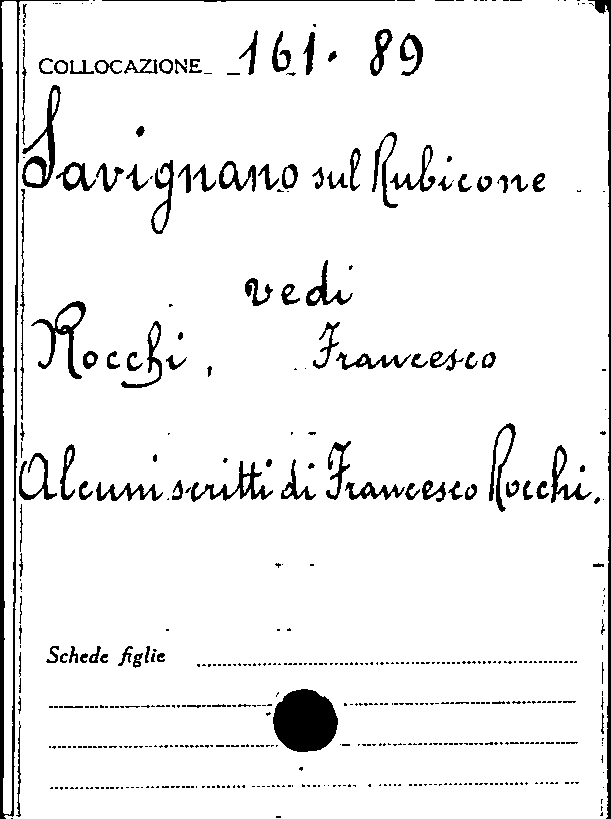 COLLOCAZIONE 161. 89
Savignano sul Rubicone
vedi
Rocchi, Francesco
Alcuni scritti di Francesco Rocchi.
Schede figlie